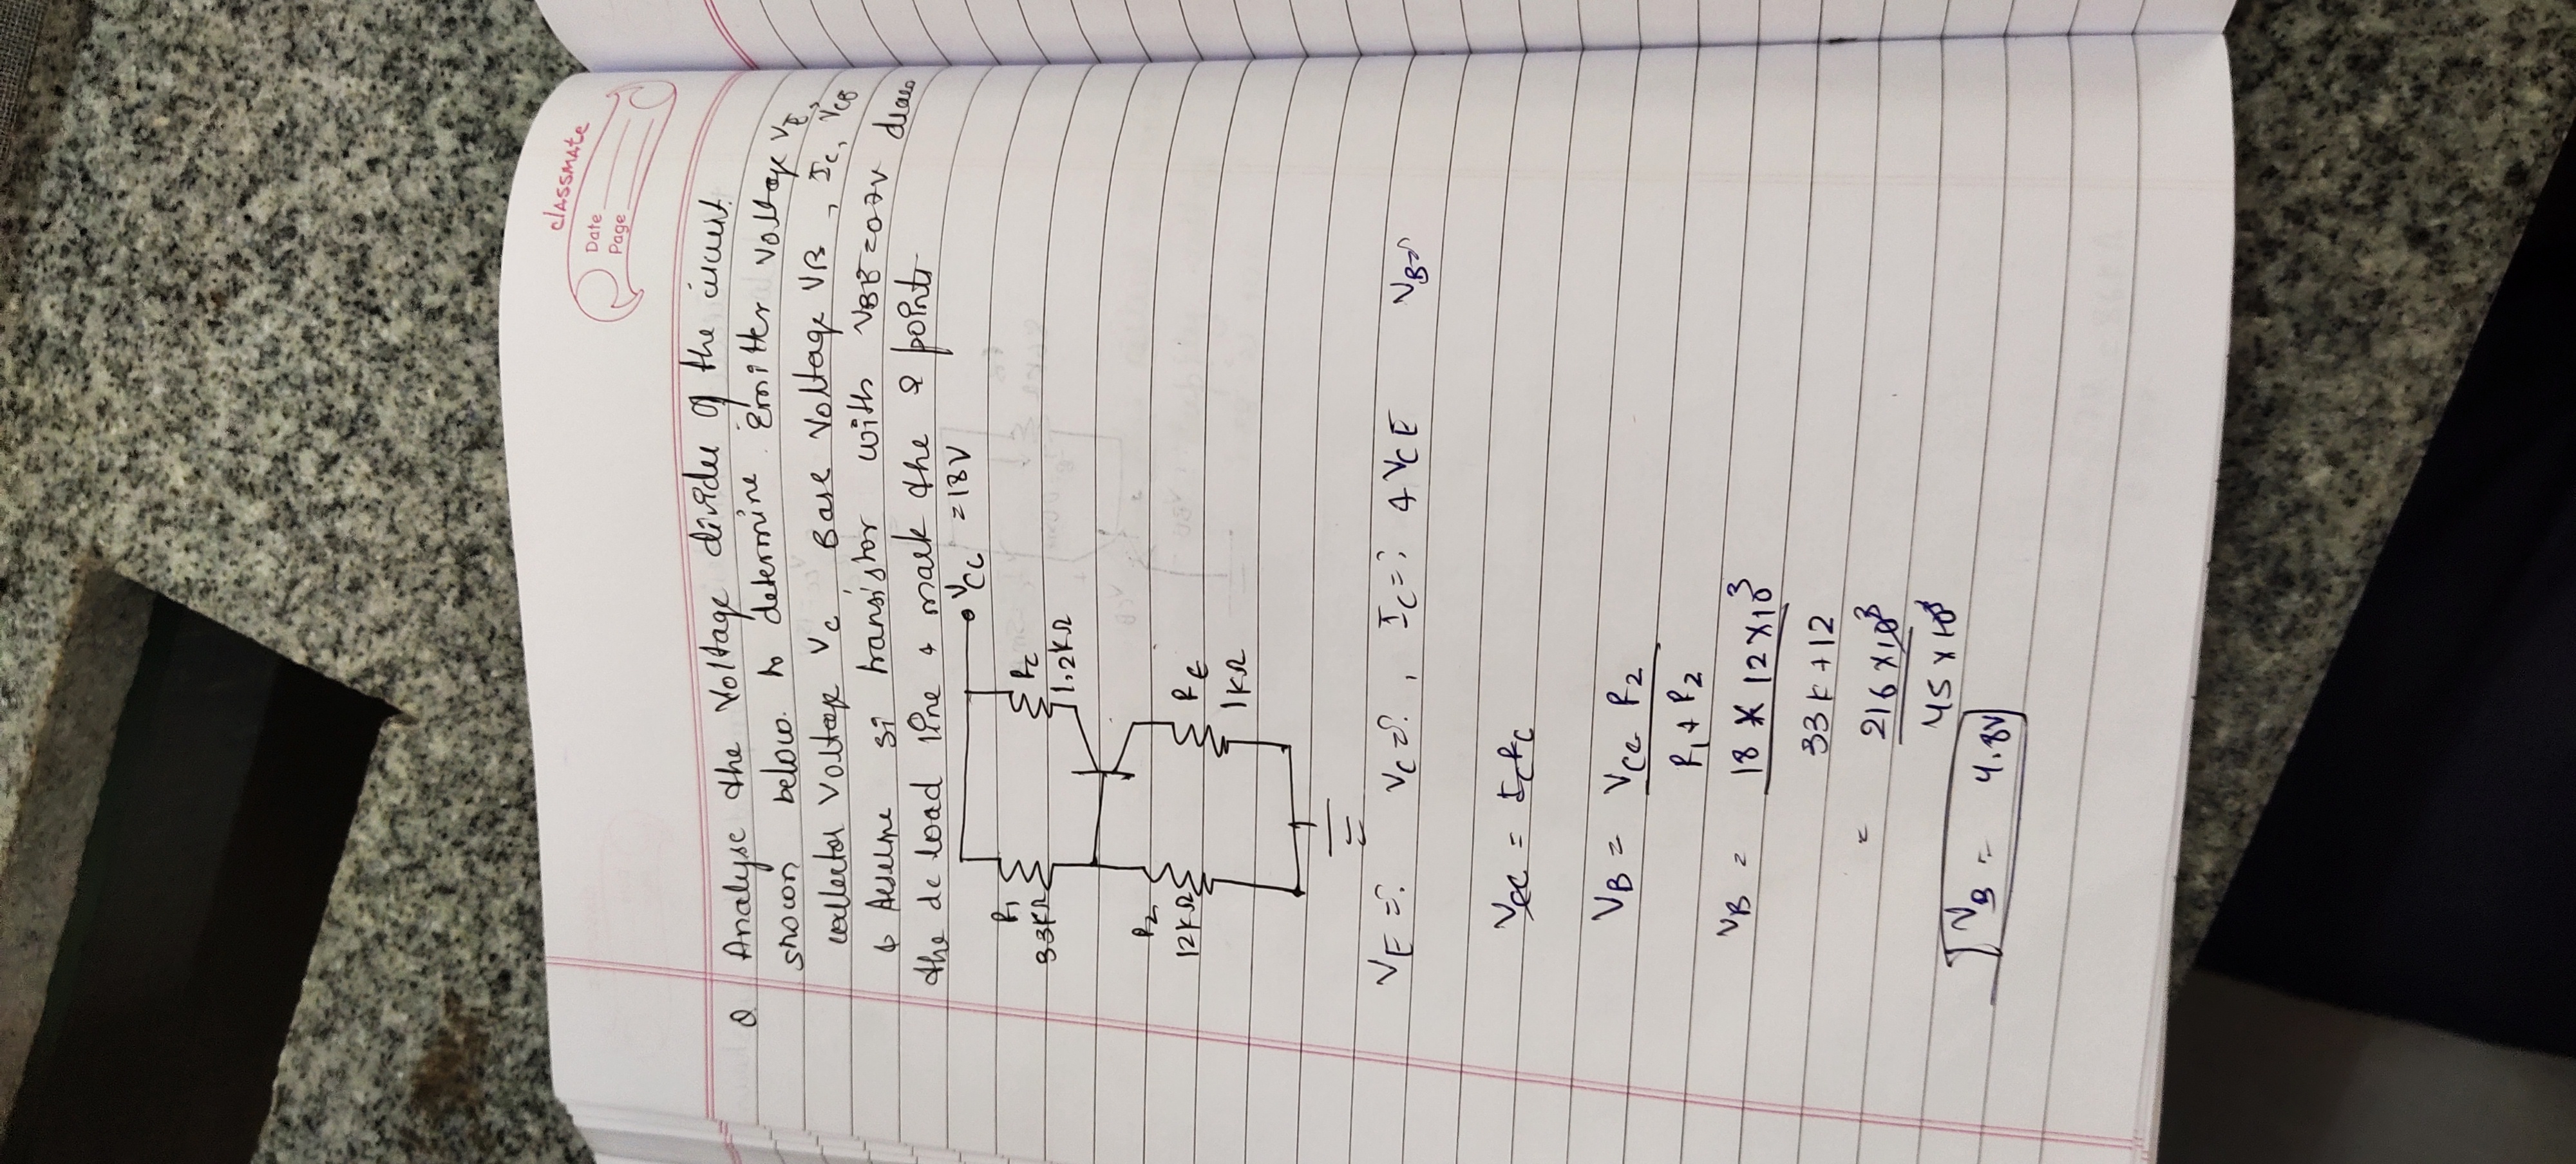 classmate
Date
Page
Q Analyse the Voltage divider of the circuit
shown below. to determine Emitter Voltage VE,
collector Voltage Vc, Base Voltage VB, Ic, VCE
& Assume si transistor with VBE = 0.7V draw
the dc load line & mark the Q points
VCC = 18V
R1
33KΩ
RC
1.2KΩ
R2
12KΩ
RE
1KΩ
VE =? VC =?, IC =? & VCE VB=?
VCC = ICRC
VB = VCC R2
R1 + R2
VB = 18 × 12×10³
33K + 12
= 216 × 10³
45 × 10³
VB = 4.8V